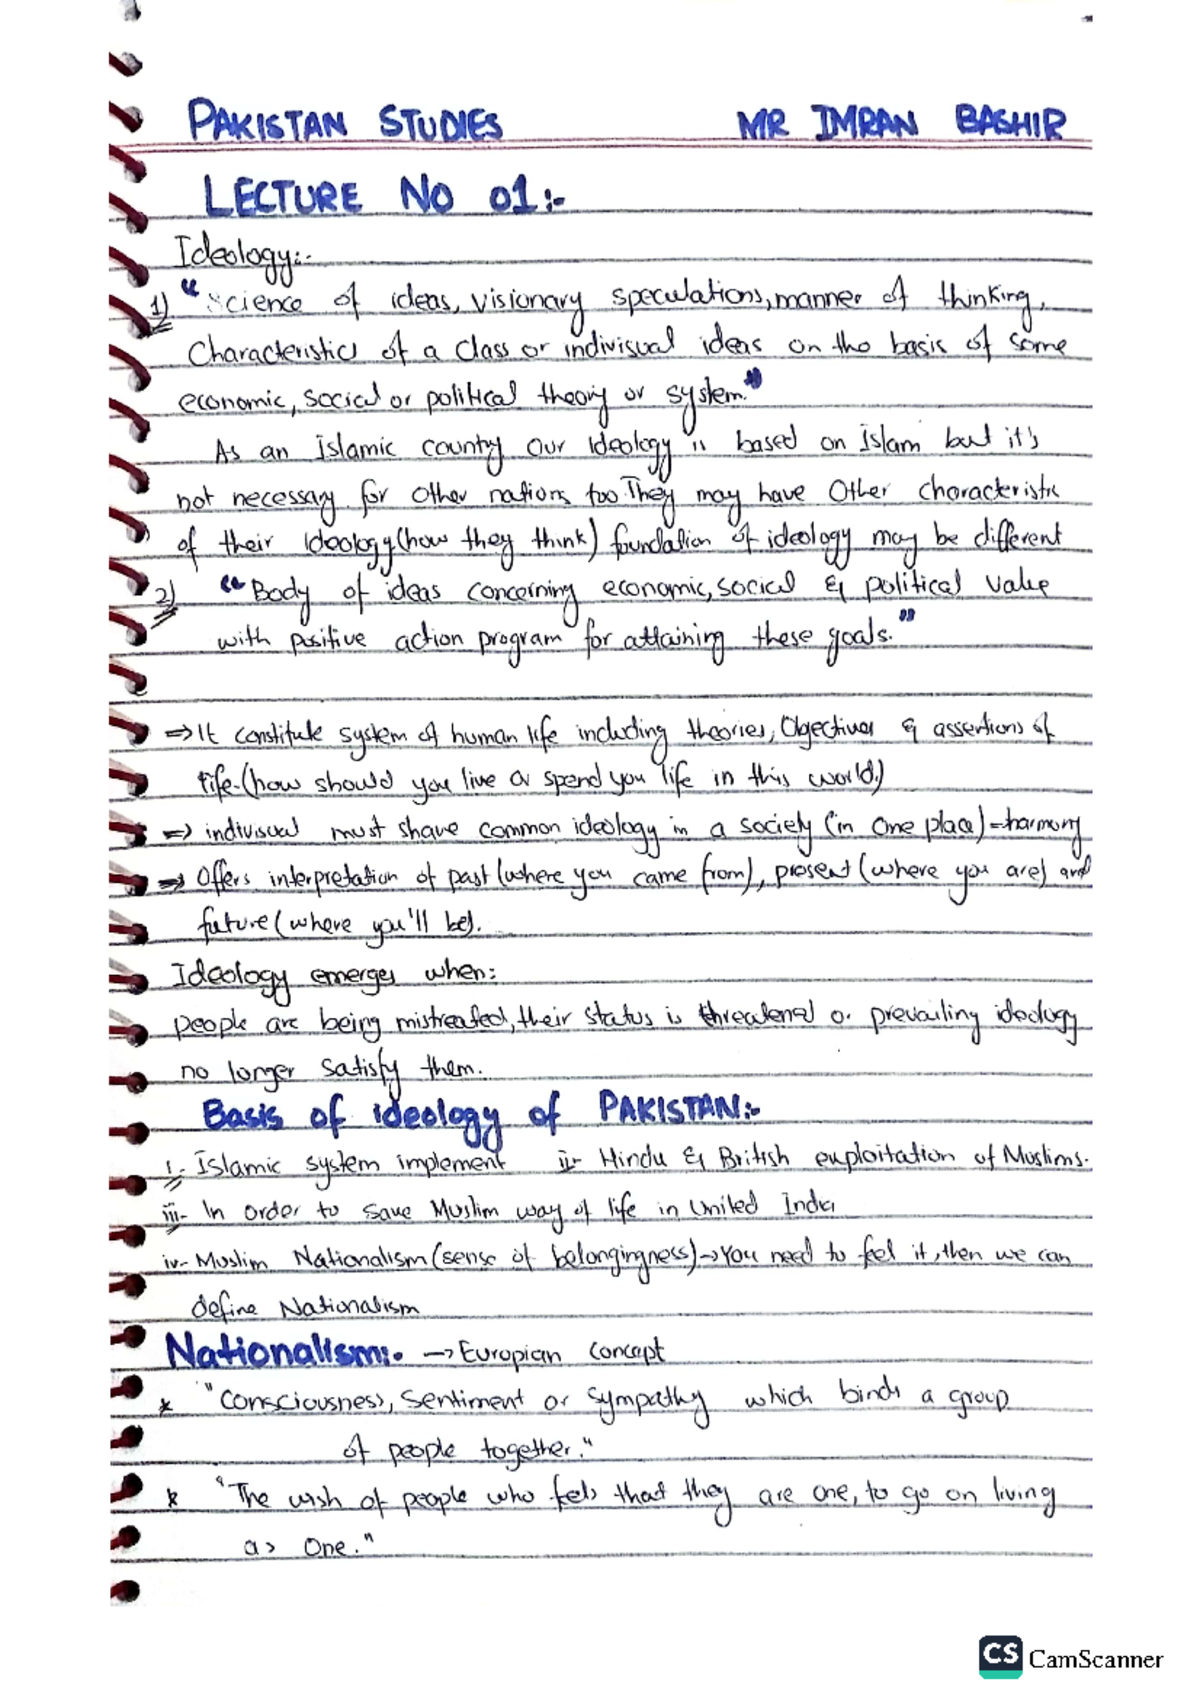 PAKISTAN STUDIES MR IMRAN BASHIR
LECTURE NO 01:-
Ideology:-
1) "Science of ideas, visionary speculations, manner of thinking,
Characteristics of a class or indivisual ideas on the basis of some
economic, social or political theory or system."
As an islamic country our ideology is based on Islam but it's
not necessary for other nations too. They may have other characteristic
of their ideology (how they think) foundation of ideology may be different
2) "Body of ideas concerning economic, social & political value
with positive action program for attaining these goals."
⇒ It constitute system of human life including theories, Objectives & assertions of
life. (how should you live or spend you life in this world.)
⇒ indivisual must share common ideology in a society (in one place) = harmony
⇒ Offers interpretation of past (where you came from), present (where you are) and
future (where you'll be).
Ideology emerges when:
people are being mistreated, their status is threatened or prevailing ideology
no longer satisfy them.
Basis of ideology of PAKISTAN:-
i- Islamic system implement ii- Hindu & British exploitation of Muslims.
iii- In order to save Muslim way of life in United India
iv- Muslim Nationalism (sense of belongingness) → You need to feel it, then we can
define Nationalism
Nationalism:- → Europian concept
* "Consciousness, sentiment or sympathy which binds a group
of people together."
* "The wish of people who feels that they are one, to go on living
as one."
CS CamScanner